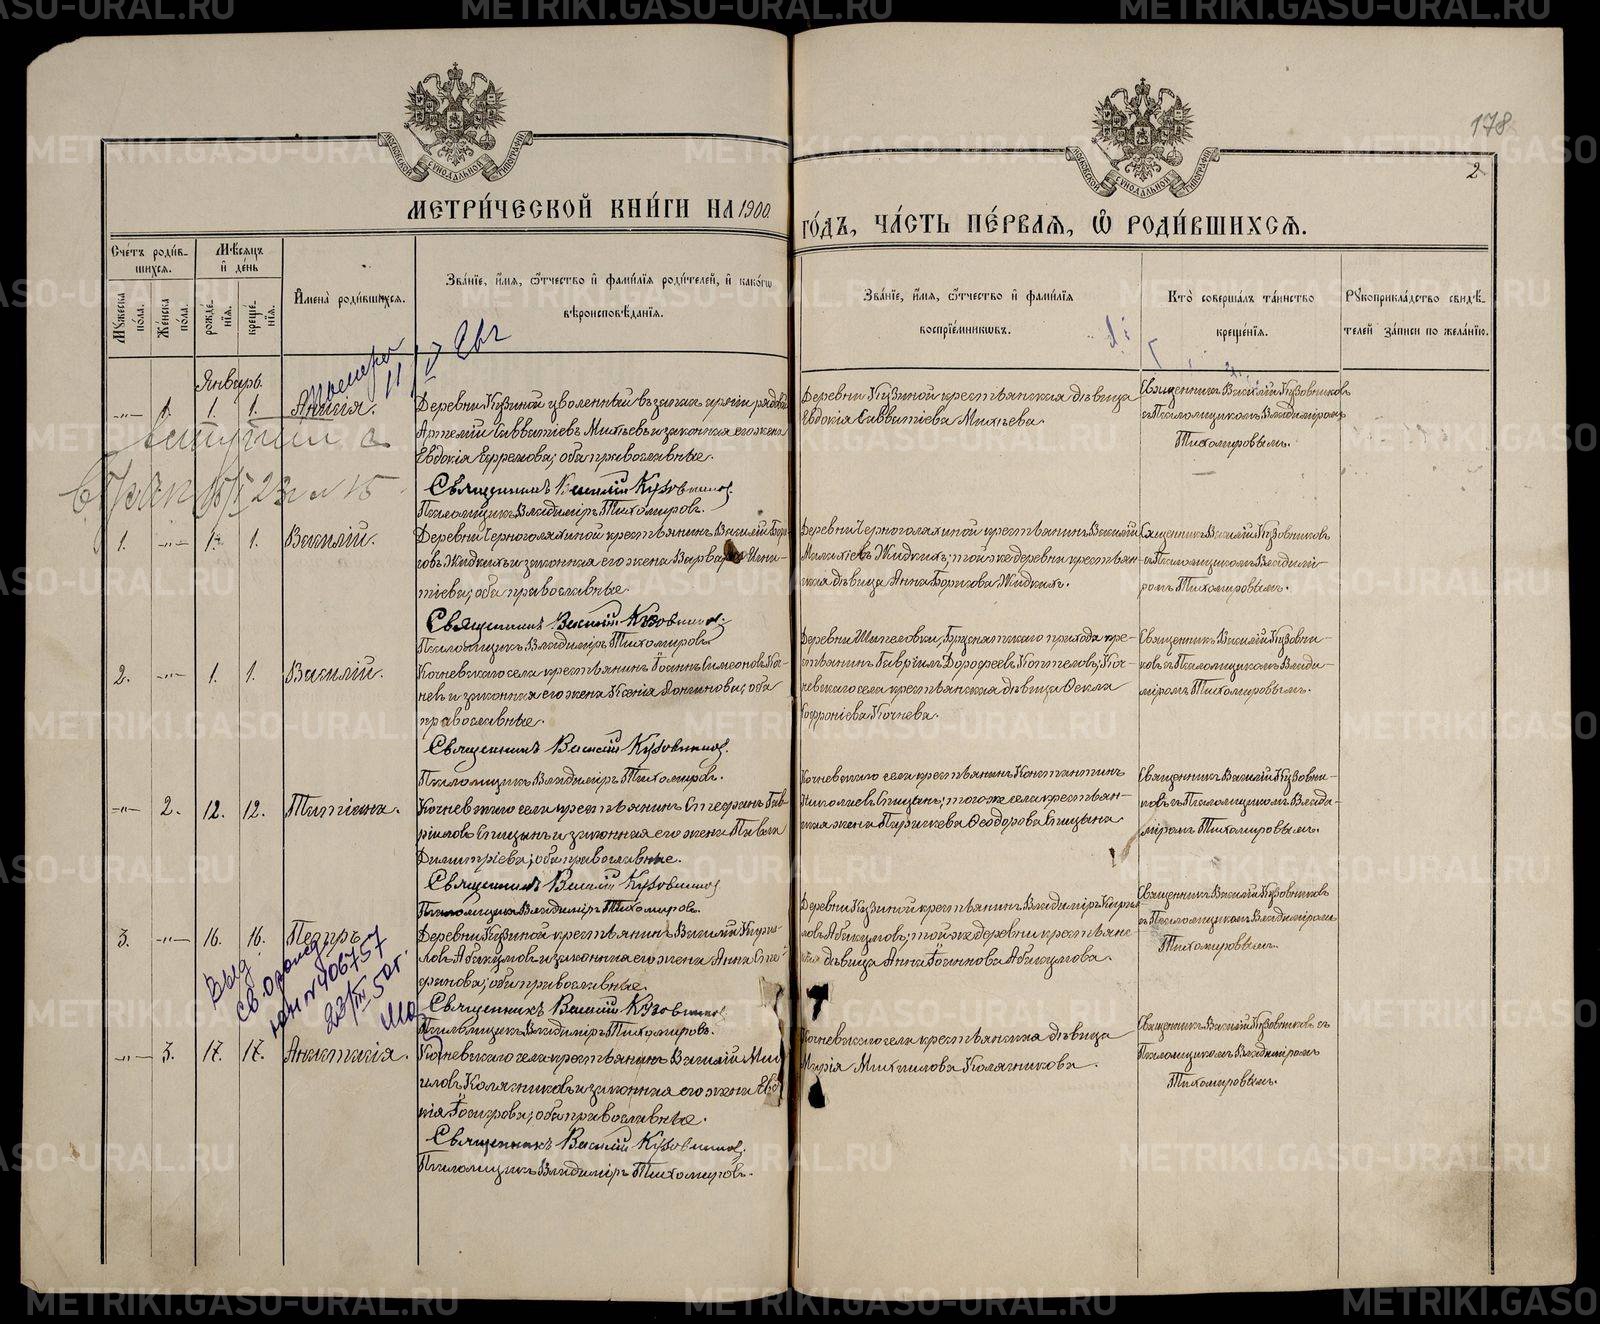 METRIKI.GASO-URAL.RU
178
2
МОСКОВСКОЙ СУНОДАЛЬНОЙ ТИПОГРАФІИ
МОСКОВСКОЙ СУНОДАЛЬНОЙ ТИПОГРАФІИ
МЕТРИ́ЧЕСКОЙ КНИ́ГИ НА 1900.
ГО́ДЪ, ЧА́СТЬ ПЕ́РВАЯ, Ѡ҆ РОДИ́ВШИХСЯ.
Сче́тъ роди́в-
шихся.
Мѣ́сяцъ
и҆ де́нь
Мꙋ́жеска
по́ла.
Же́нска
по́ла.
рожде́-
нїя.
креще́-
нїя.
И҆мена̀ роди́вшихся.
Зва́нїе, и҆́мя, ѻ҆́тчество и҆ фами́лїя роди́телей, и҆ како́гѡ
вѣроисповѣ́данїя.
Зва́нїе, и҆́мя, ѻ҆́тчество и҆ фами́лїя
воспрїе́мникѡвъ.
Кто̀ соверша́лъ та́инство
креще́нїя.
Рꙋкоприкла́дство свидѣ́-
телей за́писи по жела́нїю.
Январь.
-„- 1. 1. 1. Анисія.
Деревни Кузиной уволенный въ запасъ арміи рядовой
Артемій Савватіевъ Михѣевъ и законная его жена
Евдокія Ефремова; оба православные.
Священникъ Василій Кузовниковъ.
Псаломщикъ Владиміръ Тихомировъ.
Деревни Кузиной крестьянская дѣвица
Евдокія Савватіева Михѣева.
Священникъ Василій Кузовниковъ
съ Псаломщикомъ Владиміромъ
Тихомировымъ.
1. -„- 1. 1. Василій.
Деревни Черноголяхиной крестьянинъ Василій
Жидкихъ и законная его жена Варвара Игна-
тіева; оба православные.
Священникъ Василій Кузовниковъ.
Псаломщикъ Владиміръ Тихомировъ.
крестьянинъ Василій
Малахіевъ Жидкихъ; той же деревни крестьян-
ская дѣвица Анна Борисова Жидкихъ.
Священникъ Василій Кузовниковъ
съ Псаломщикомъ Владимі-
ромъ Тихомировымъ.
2. -„- 1. 1. Василій.
Кочневскаго села крестьянинъ Іоаннъ Симеоновъ Коч-
невъ и законная его жена Ксенія Логинова; оба
православные.
Священникъ Василій Кузовниковъ.
Псаломщикъ Владиміръ Тихомировъ.
Деревни прихода кре-
стьянинъ Гавріилъ Дорофеевъ Коптеловъ; Коч-
невскаго села крестьянская дѣвица Ѳекла
Софроніева Кочнева.
Священникъ Василій Кузовни-
ковъ съ Псаломщикомъ Влади-
міромъ Тихомировымъ.
-„- 2. 12. 12. Татіана.
Кочневскаго села крестьянинъ Стефанъ Гав-
ріиловъ Спицынъ и законная его жена Павла
Димитріева; оба православные.
Священникъ Василій Кузовниковъ
Псаломщикъ Владиміръ Тихомировъ.
Кочневскаго села крестьянинъ Константинъ
Николаевъ Спицынъ; того же села крестьян-
ская жена Параскева Ѳеодорова Спицына
Священникъ Василій Кузовни-
ковъ съ Псаломщикомъ Влади-
міромъ Тихомировымъ.
3. -„- 16. 16. Петръ.
Деревни Кузиной крестьянинъ Василій Кирил-
ловъ Абакумовъ и законная его жена Анна Сте-
фанова; оба православные.
Священникъ Василій Кузовниковъ.
Псаломщикъ Владиміръ Тихомировъ.
Деревни Кузиной крестьянинъ Владиміръ Кирил-
ловъ Абакумовъ; той же деревни крестьян-
ская дѣвица Анна Іоаннова Абакумова.
Священникъ Василій Кузовниковъ
съ Псаломщикомъ Владиміромъ
Тихомировымъ.
Выд.
№ 406757
23/III 50г.
-„- 3. 17. 17. Анастасія.
Кочневскаго села крестьянинъ Василій Миха-
иловъ Колясниковъ и законная его жена Евдо-
кія оба православные.
Священникъ Василій Кузовниковъ.
Псаломщикъ Владиміръ Тихомировъ.
Кочневскаго села крестьянская дѣвица
Марія Михаилова Колясникова.
Священникъ Василій Кузовниковъ съ
Псаломщикомъ Владиміромъ
Тихомировымъ.